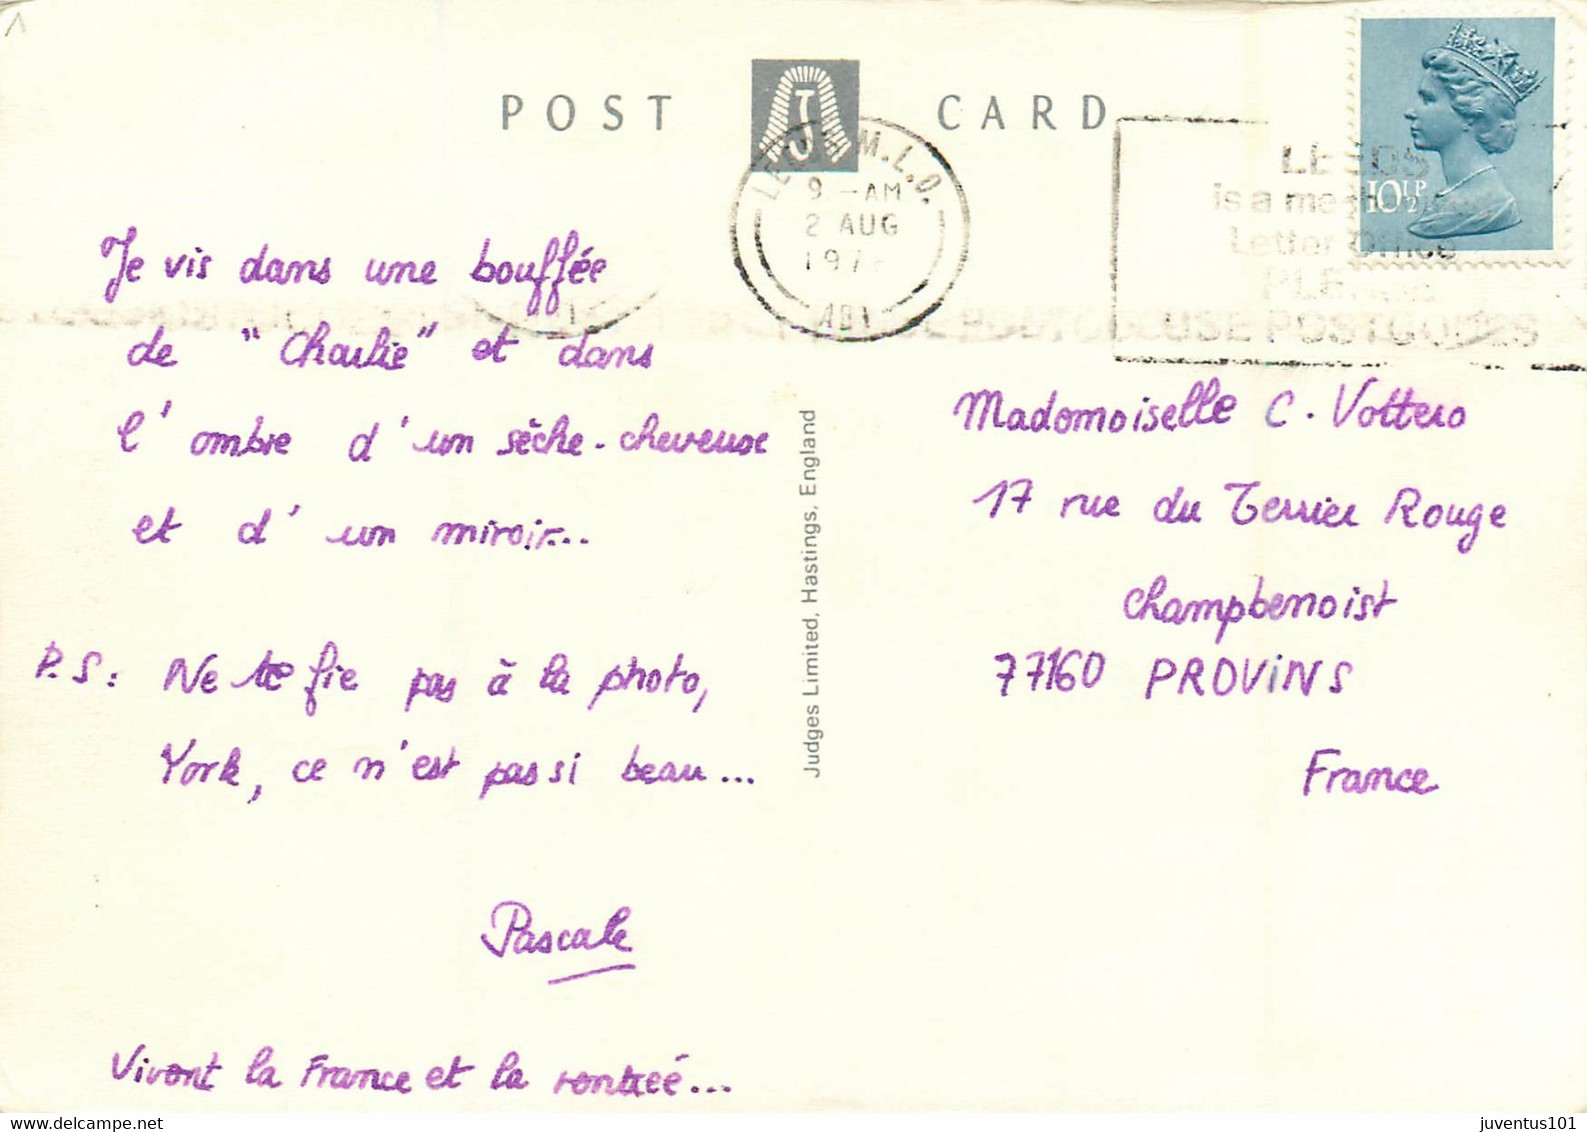 POST CARD
J
M.L.O.
9 - AM
2 AUG
197
LEEDS
is a
Letter Office
10½P
USE POSTCODES
Je vis dans une bouffée
de "Charlie" et dans
l'ombre d'un sèche-cheveux
et d'un miroir...
P.S: Ne te fie pas à la photo,
York, ce n'est pas si beau...
Pascale
Vivont la France et la rentrée...
Judges Limited, Hastings, England
Madomoiselle C. Vottero
17 rue du Terrier Rouge
Champbenoist
77160 PROVINS
France
juventus101